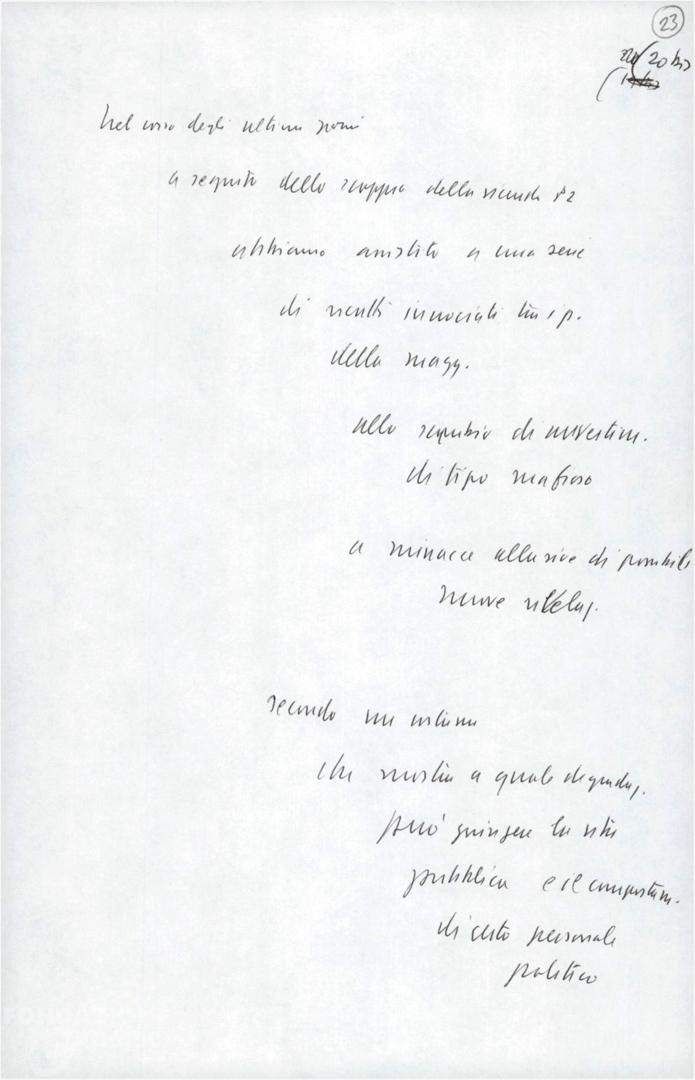 23
20 bis
Nel corso degli ultimi giorni
a seguito dello scoppio della vicenda P2
abbiamo assistito a una serie
di ricatti incrociati tra i p.
della magg.
allo squilibrio di
di tipo mafioso
a minacce allusive di possibili
nuove rivelaz.
secondo un costume
che mostra a quale degradaz.
può giungere la vita
pubblica e il comportam.
di certo personale
politico